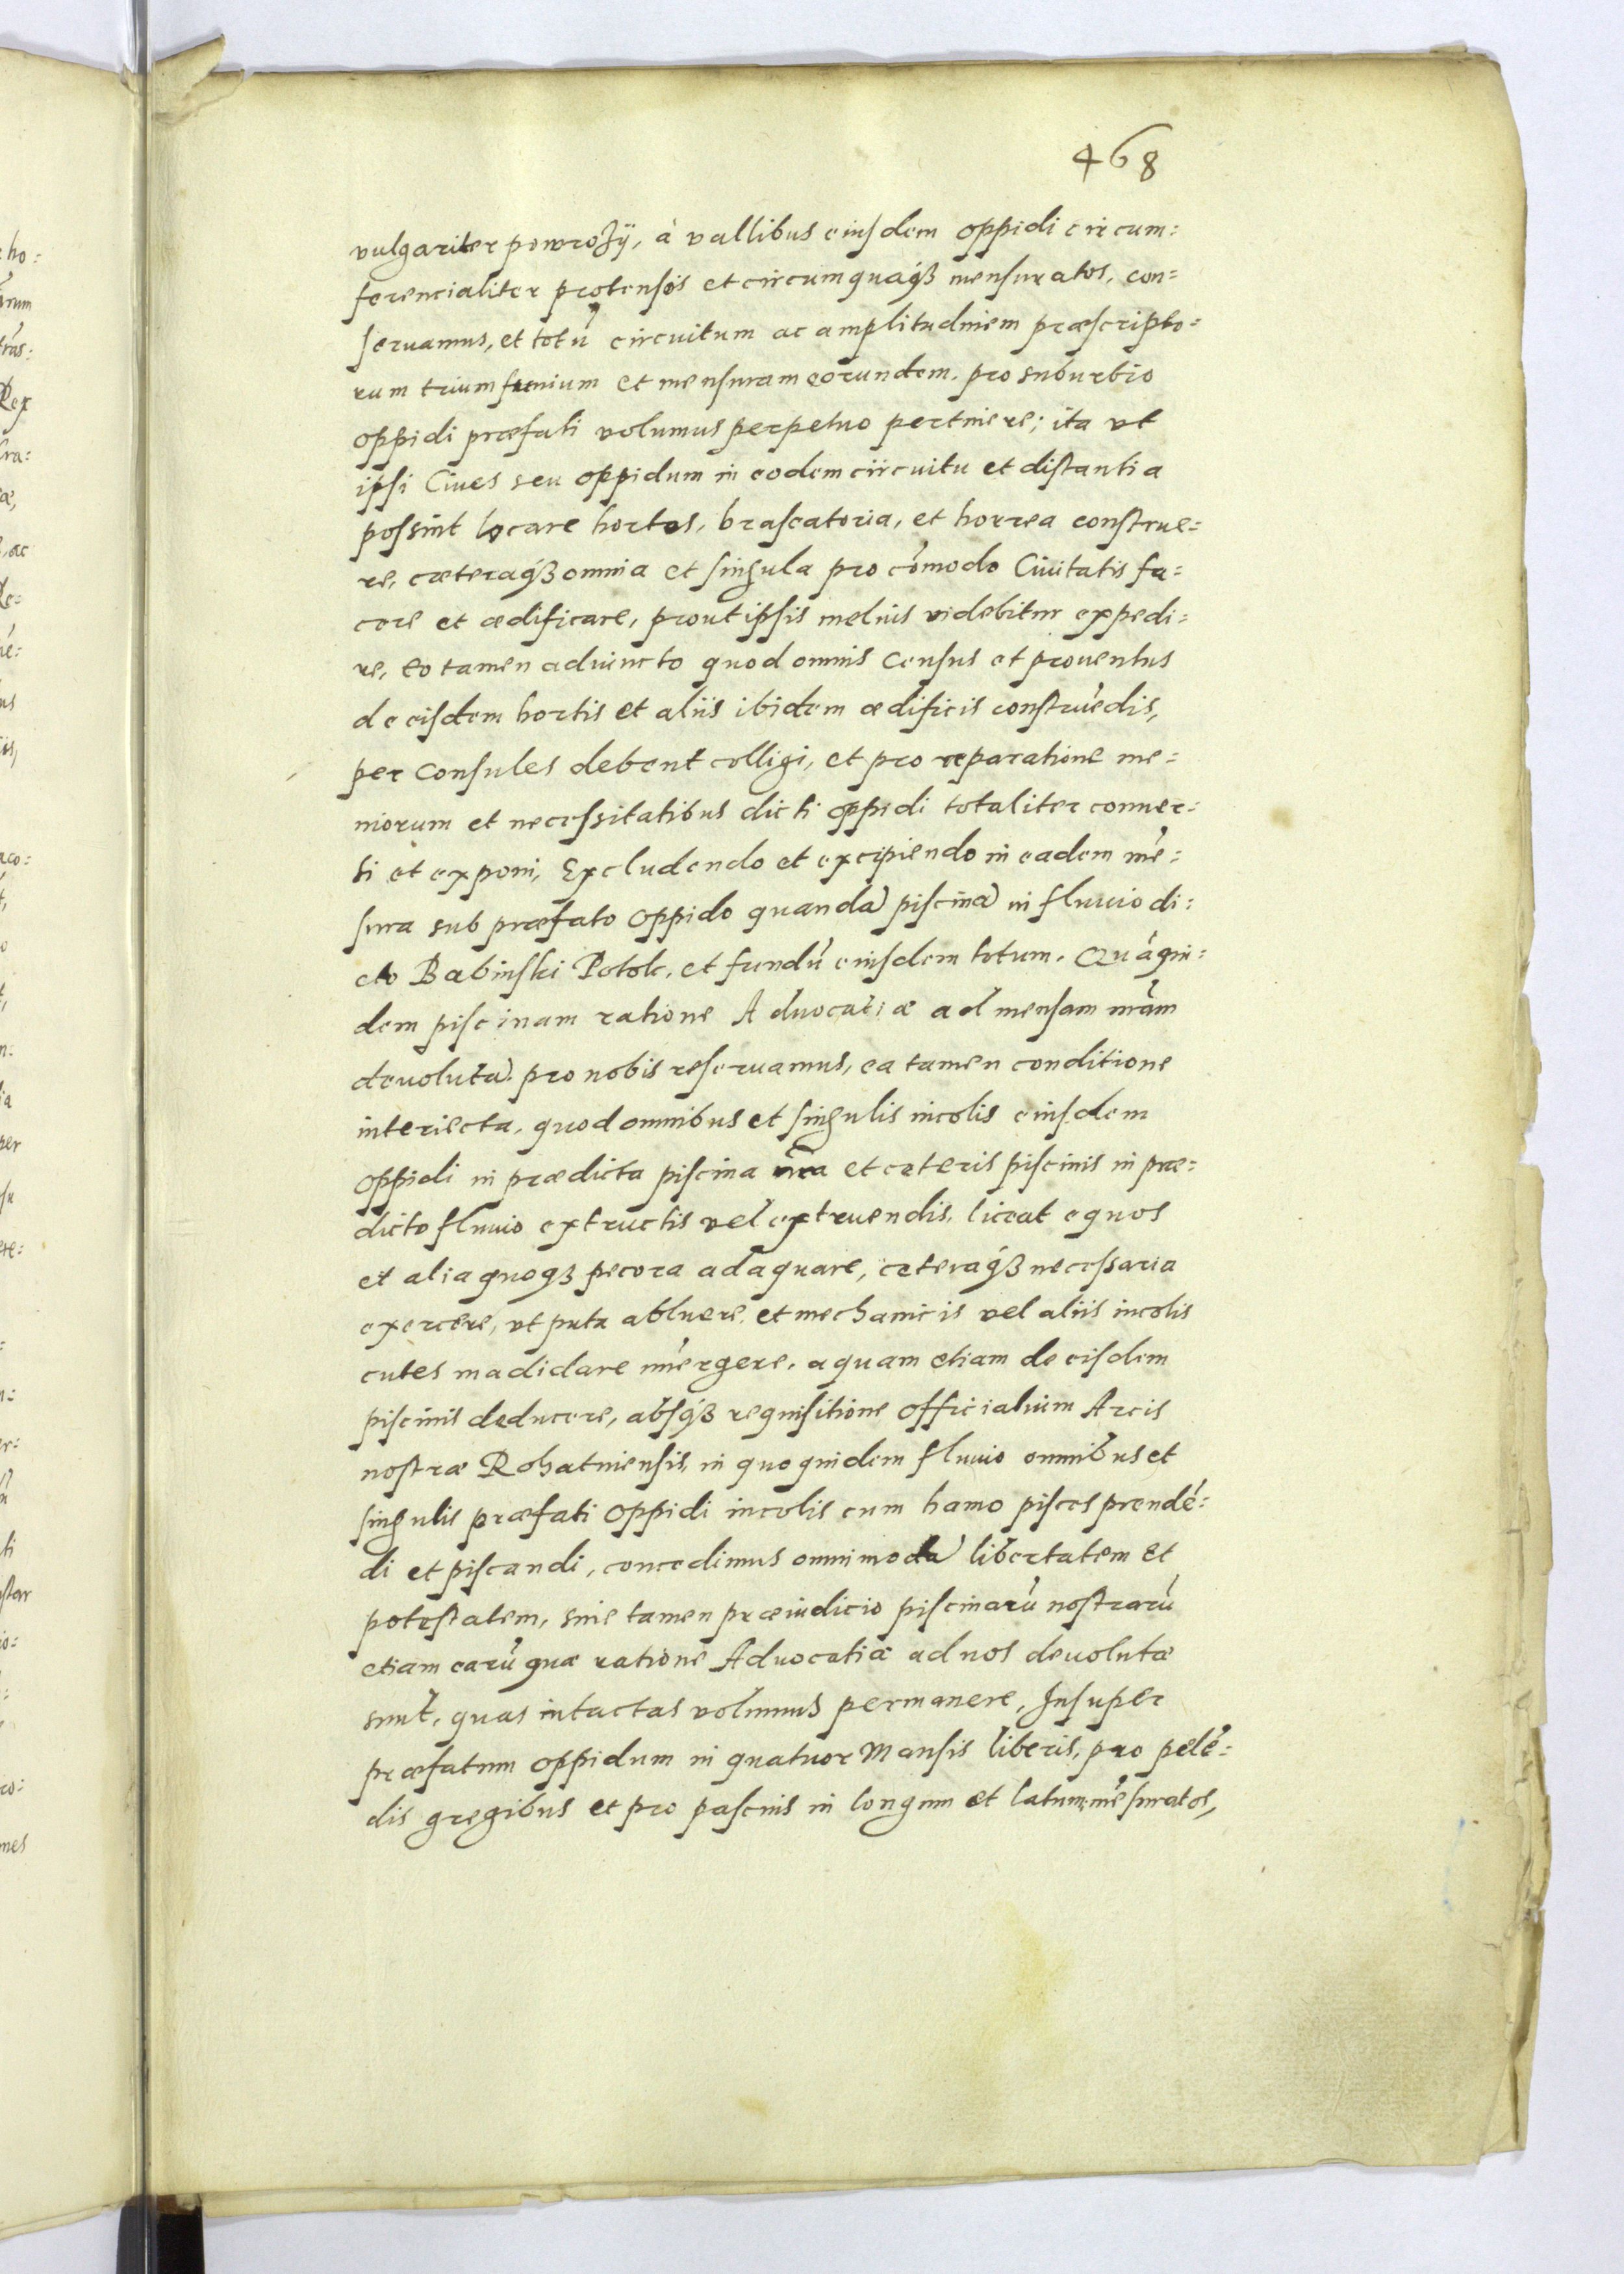 468
vulgariter powrozÿ, à vallibus eiusdem oppidi circum=
ferencialiter protensos et circumquaq́ꝫ mensuratos, con=
seruamus, et totū circuitum ac amplitudinem præscripto=
rum trium funium et mensuram eorundem. pro suburbio
oppidi præfati volumus perpetuo pertinere; ita vt
ipsi Ciues seu oppidum in eodem circuitu et distantia
possint locare hortos, brascatoria, et horrea construe=
re, cæteraq́ꝫ omnia et singula pro cōmodo Ciuitatis fa=
cere et ædificare, prout ipsis melius videbitur expedi=
re, eo tamen adiuncto quod omnis census et prouentus
de eisdem hortis et aliis ibidem ædificis construēdis,
per Consules debent colligi, et pro reparatione me=
niorum et necessitatibus dicti oppidi totaliter conuer=
ti et exponi, Excludendo et excipiendo in eadem mē=
sura sub præfato oppido quandā piscinā in fluuio di=
cto Babinski Potok, et fundū eiusdem totum. Quāqui=
dem piscinam ratione Aduocatiæ ad mensam nrām
deuolutā. pro nobis reseruamus, ea tamen conditione
interiecta, quod omnibus et singulis incolis eiusdem
oppidi in prædicta piscina nrā et cæteris piscinis in præ=
dicto fluuio extructis vel extruendis, liceat equos
et alia quoqꝫ pecora adaquare, cæteraq́ꝫ necessaria
exercere, vt puta abluere, et mechanicis vel aliis incolis
cutes madidare īmergere, aquam etiam de eisdem
piscinis deducere, absq́ꝫ requisitione officialium Arcis
nostræ Rohatinensis, in quo quidem fluuio omnibus et
singulis præfati oppidi incolis cum hamo pisces prendē=
di et piscandi, concedimus omnimodā libertatem et
potestatem, sine tamen præiudicio piscinarū nostrarū
etiam earū quæ ratione Aduocatiæ ad nos deuolutæ
sunt, quas intactas volumus permanere, Insuper
præfatum oppidum in quatuor Mansis liberis, pro pelē=
dis gregibus et pro pascuis in longum et latum mēsuratos,